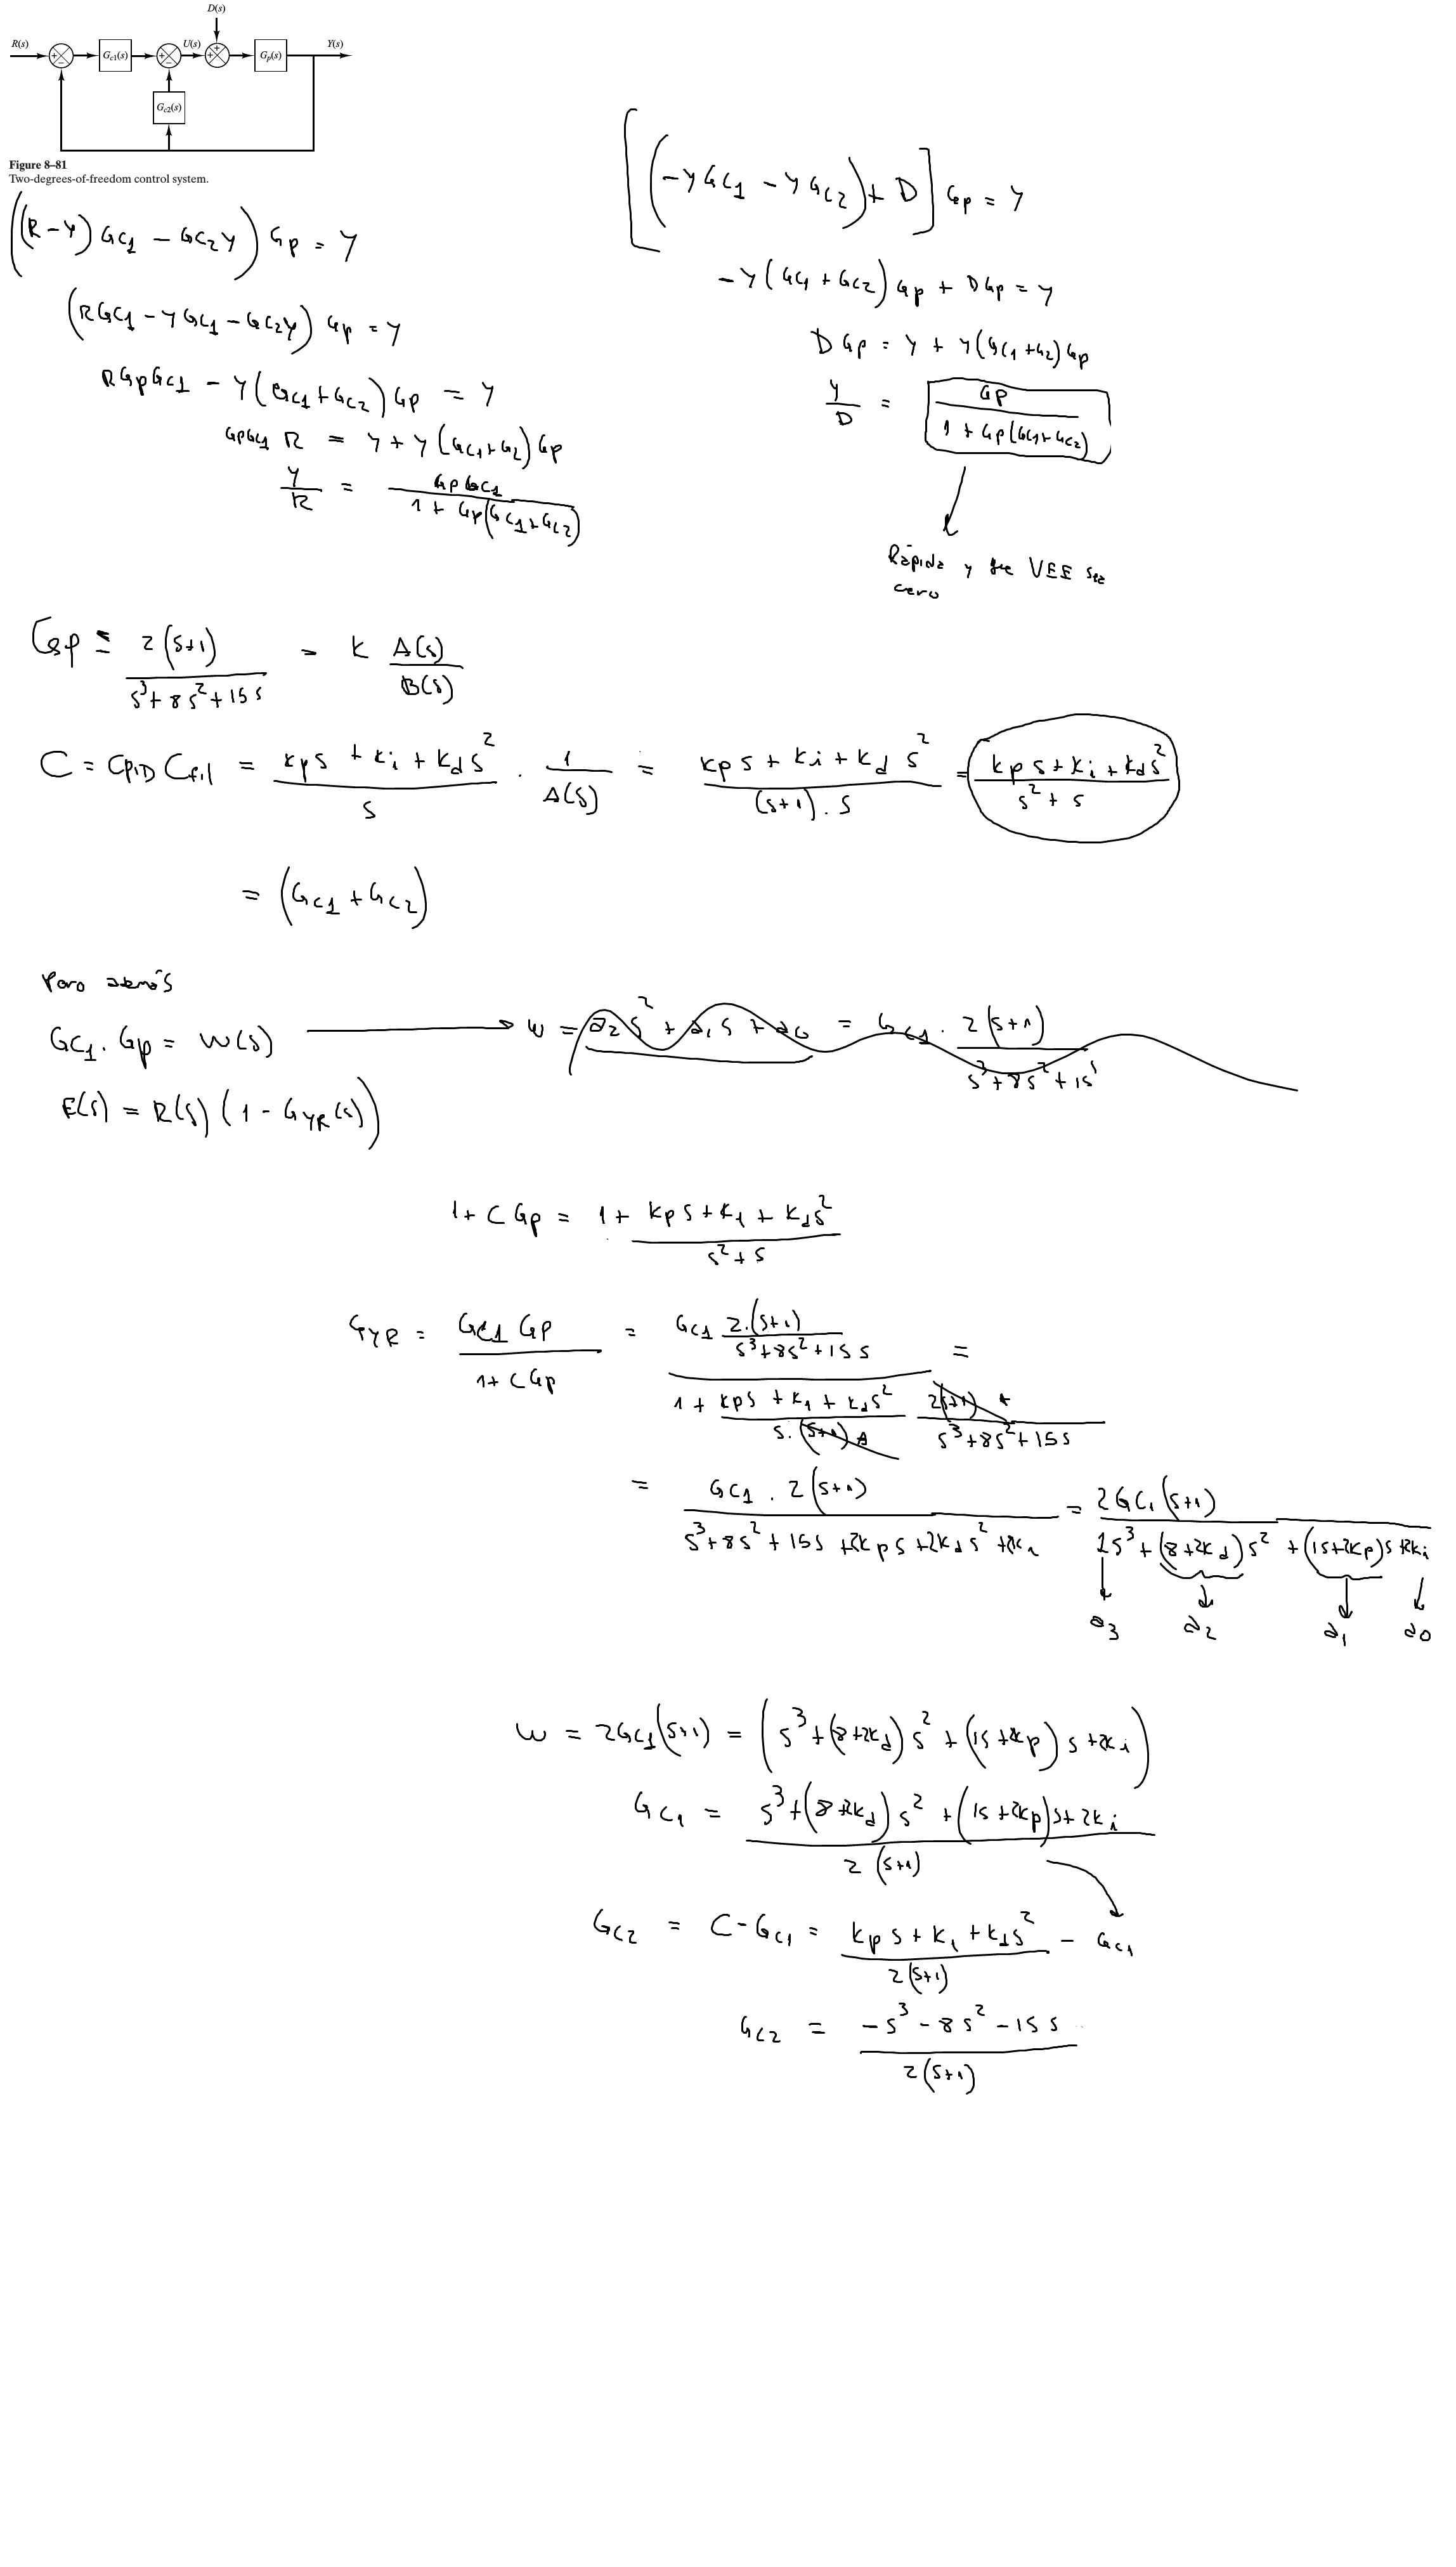 D(s)
R(s) + − Gc1(s) + − U(s) + + Gp(s) Y(s)
Gc2(s)
Figure 8–81
Two-degrees-of-freedom control system.
((R-Y) Gc1 - Gc2Y) Gp = Y
(RGc1 - YGc1 - Gc2Y) Gp = Y
RGpGc1 - Y(Gc1+Gc2)Gp = Y
GpGc1 R = Y + Y(Gc1+G2)Gp
Y/R = GpGc1 / (1 + Gp(Gc1+Gc2))
[(-YGc1 - YGc2) + D] Gp = Y
-Y(Gc1+Gc2)Gp + DGp = Y
DGp = Y + Y(Gc1+G2)Gp
Y/D = Gp / (1 + Gp(Gc1+Gc2))
Rápida y que VEE sea
cero
Gp = 2(s+1) / (s³+8s²+15s) = K A(s)/B(s)
C = CPID Cfil = (kps + ki + kds²)/s · 1/A(s) = (kps + ki + kds²)/((s+1).s) = (kps + ki + kds²)/(s²+s)
= (Gc1+Gc2)
Gc1.Gp = W(s) → W = a2s² + a1s + a0 = Gc1 . 2(s+1) / (s³+8s²+15
E(s) = R(s)(1 - GYR(s))
1+CGp = 1 + (kps+k1+kds²)/(s²+s)
GYR = Gc1Gp/(1+CGp) = Gc1 2.(s+1)/(s³+8s²+15s) / (1 + (kps+k1+kds²)/(s.(s+1)) 2(s+1)/(s³+8s²+15s)) =
= Gc1 . 2(s+1) / (s³+8s²+15s+2kps+2kds²+2ki) = 2Gc1(s+1) / (1s³+(8+2kd)s²+(15+2kp)s+2ki)
a3 a2 a1 a0
W = 2Gc1(s+1) = (s³+(8+2kd)s²+(15+2kp)s+2ki)
Gc1 = (s³+(8+2kd)s²+(15+2kp)s+2ki) / (2(s+1))
Gc2 = C-Gc1 = (kps+k1+kds²)/(2(s+1)) - Gc1
Gc2 = (-s³-8s²-15s) / (2(s+1))